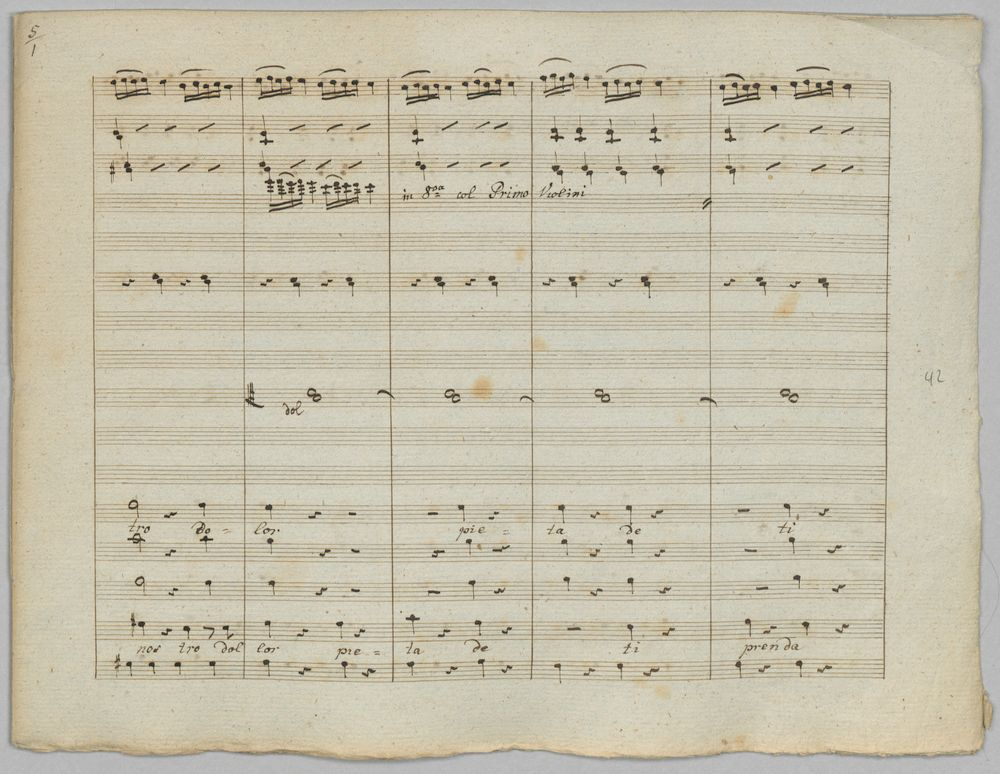 5
1
in 8va col Primo Violini
42
dol
tro Do- lor pie- ta de ti
nos tro dol lor pie- ta de ti prenda